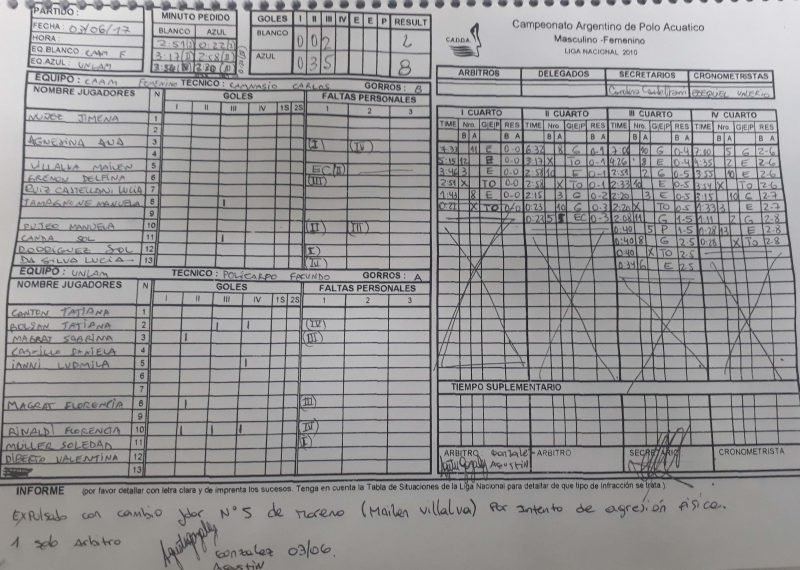 PARTIDO:
FECHA: 03/06/17
HORA:
EQ.BLANCO: CAAM F
EQ.AZUL: UNLAM
MINUTO PEDIDO
BLANCO AZUL
GOLES I II III IV E E P RESULT
BLANCO 0 0 2 2
AZUL 0 3 5 8
CADDA
Campeonato Argentino de Polo Acuatico
Masculino -Femenino
LIGA NACIONAL 2010
ARBITROS DELEGADOS SECRETARIOS CRONOMETRISTAS
EQUIPO: CAAM FEMENINO TECNICO: CARLOS GORROS: B
NOMBRE JUGADORES N GOLES FALTAS PERSONALES
I II III IV 1S 2S 1 2 3
NUÑEZ JIMENA 1
2
AGNEZINA ANA 3 (I) (IV)
4
VILLALVA MAILEN 5 EC(II)
DELFINA 6 (III)
RUIZ CASTELLANI LUCIA 7
TAMAGNONE MANUELA 8
9
PUJEO MANUELA 10 (II) (III)
CANDA SOL 11
RODRIGUEZ SOL 12 (I)
DA SILVA LUCIA 13 (IV)
EQUIPO: UNLAM TECNICO: POLICARPO FACUNDO GORROS: A
NOMBRE JUGADORES N GOLES FALTAS PERSONALES
I II III IV 1S 2S 1 2 3
CANTON TATIANA 1
ROLDAN TATIANA 2 (IV)
MAGRAT SABRINA 3 (III)
CASTILLO DANIELA 4
IANNI LUDMILA 5
6
7
MAGRAT FLORENCIA 8 (III)
9
RINALDI FLORENCIA 10 (IV)
MÜLLER SOLEDAD 11 (I)
DIBERTO VALENTINA 12
13
I CUARTO II CUARTO III CUARTO IV CUARTO
TIME Nro. G/E/P RES TIME Nro. G/E/P RES TIME Nro. G/E/P RES TIME Nro. G/E/P RES
B A B A B A B A B A B A B A B A
7:33 11 E 0-0 6:32 8 G 0-1 7:06 10 G 0-4 7:00 5 G 2-6
5:15 12 E 0-0 3:17 X TO 0-1 4:26 8 E 0-4 4:35 2 E 2-6
3:46 3 E 0-0 2:58 10 E 0-1 2:51 2 G 0-5 3:55 10 E 2-6
2:51 X TO 0-0 2:58 X TO 0-1 2:33 10 E 0-5 3:54 X TO 2-6
1:43 8 E 0-0 2:15 3 G 0-2 2:20 3 E 0-5 3:15 10 G 2-7
0:22 X TO 0-0 0:23 10 G 0-3 2:20 X TO 0-5 1:33 3 E 2-7
0:23 5 EC 0-3 2:08 11 G 1-5 1:11 2 G 2-8
0:40 5 P 1-5 0:28 13 E 2-8
0:40 8 G 2-5 0:28 X TO 2-8
0:40 X TO 2-5
0:34 6 E 2-5
TIEMPO SUPLEMENTARIO
ARBITRO Gonzalez Agustin ARBITRO SECRETARIO CRONOMETRISTA
INFORME (por favor detallar con letra clara y de imprenta los sucesos. Tenga en cuenta la Tabla de Situaciones de la Liga Nacional para detallar de que tipo de infracción se trata)
Expulsado con cambio Jdor N°5 de Moreno (Mailen Villalva) Por intento de agresión fisica.
1 solo arbitro
Gonzalez 03/06.
Agustin